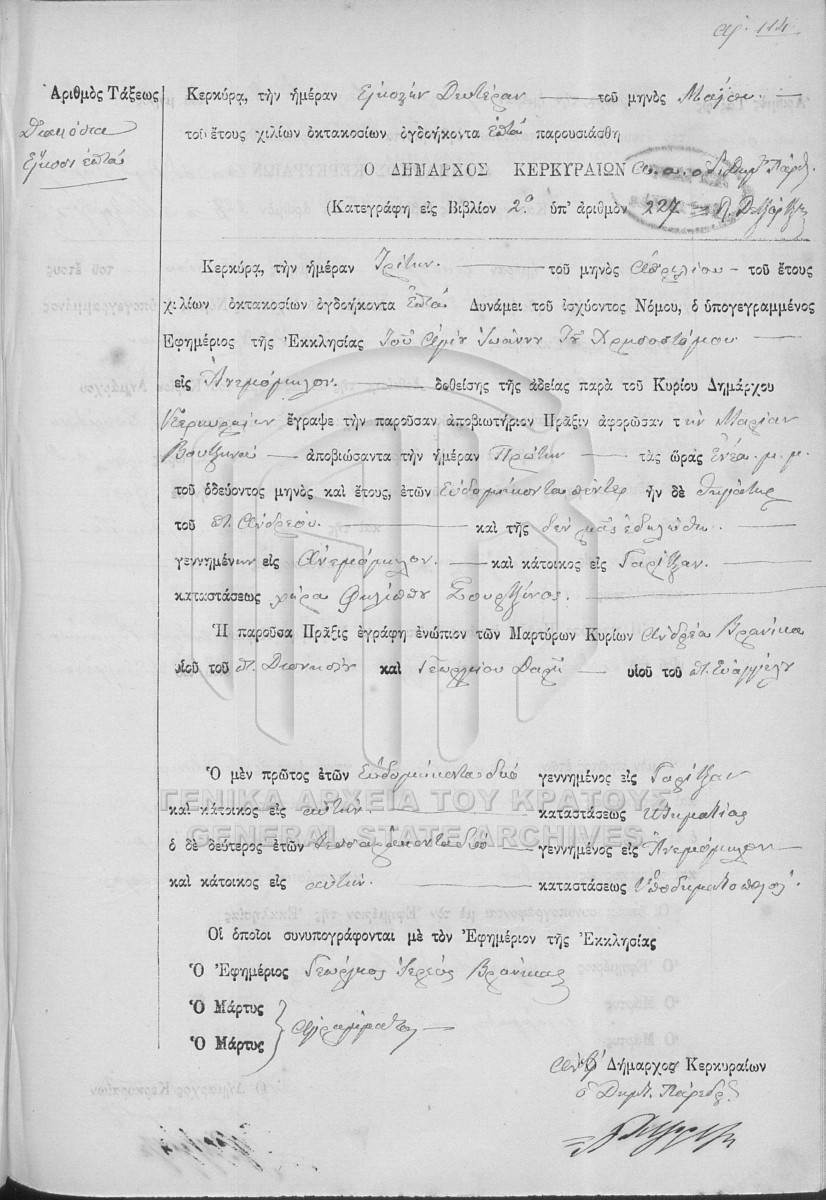 114
Ἀριθμὸς Τάξεως
Διακόσια
Εἴκοσι ἑπτά
Κερκύρᾳ, τὴν ἡμέραν Εἰκοστὴν Δευτέραν τοῦ μηνὸς Μαΐου
τοῦ ἔτους χιλίων ὀκτακοσίων ὀγδοήκοντα ἑπτά παρουσιάσθη
Ὁ ΔΗΜΑΡΧΟΣ ΚΕΡΚΥΡΑΙΩΝ
(Κατεγράφη εἰς Βιβλίον 2ο ὑπ' ἀριθμὸν 227
Κερκύρᾳ, τὴν ἡμέραν Τρίτην τοῦ μηνὸς Ἀπριλίου τοῦ ἔτους
χιλίων ὀκτακοσίων ὀγδοήκοντα ἑπτά Δυνάμει τοῦ ἰσχύοντος Νόμου, ὁ ὑπογεγραμμένος
Ἐφημέριος τῆς Ἐκκλησίας τοῦ Ἁγίου Ἰωάννου τοῦ Χρυσοστόμου
εἰς Ἀνεμόμυλον δοθείσης τῆς ἀδείας παρὰ τοῦ Κυρίου Δημάρχου
Κερκυραίων ἔγραψε τὴν παροῦσαν ἀποβιωτήριον Πρᾶξιν ἀφορῶσαν τὴν Μαρίαν
ἀποβιώσαντα τὴν ἡμέραν Πρώτην τὰς ὥρᾳς Ἐνέα μ. μ.
τοῦ ὁδεύοντος μηνὸς καὶ ἔτους, ἐτῶν Εὑδομήκοντα πέντε ἦν δὲ θυγάτηρ
τοῦ π. Ἀνδρέου καὶ τῆς δὲν μᾶς ἐδηλώθη
γεννημένην εἰς Ἀνεμόμυλον καὶ κάτοικος εἰς Γαρίτζαν
καταστάσεως χήρα Φιλίππου
Ἡ παροῦσα Πρᾶξις ἐγράφη ἐνώπιον τῶν Μαρτύρων Κυρίων Ἀνδρέα Βρανίκα
υἱοῦ τοῦ π. Διονυσίου καὶ Γεωργίου υἱοῦ τοῦ π. Εὐαγγέλου
Ὁ μὲν πρῶτος ἐτῶν Εὑδομήκοντα δύο γεννημένος εἰς Γαρίτζαν
καὶ κάτοικος εἰς αὐτήν καταστάσεως Κτηματίας
ὁ δὲ δεύτερος ἐτῶν Τεσσαράκοντα δύο γεννημένος εἰς Ἀνεμόμυλον
καὶ κάτοικος εἰς αὐτήν καταστάσεως Ὑποδηματοποιός
Οἱ ὁποῖοι συνυπογράφονται μὲ τὸν Ἐφημέριον τῆς Ἐκκλησίας
Ὁ Ἐφημέριος Γεώργιος Ἱερεύς Βρανίκας
Ὁ Μάρτυς
Ὁ Μάρτυς
ἀγράμματοι
Ὁ Δήμαρχος Κερκυραίων
ὁ Δημτ. Πάρεδρος
ΓΕΝΙΚΑ ΑΡΧΕΙΑ ΤΟΥ ΚΡΑΤΟΥΣ
GENERAL STATE ARCHIVES